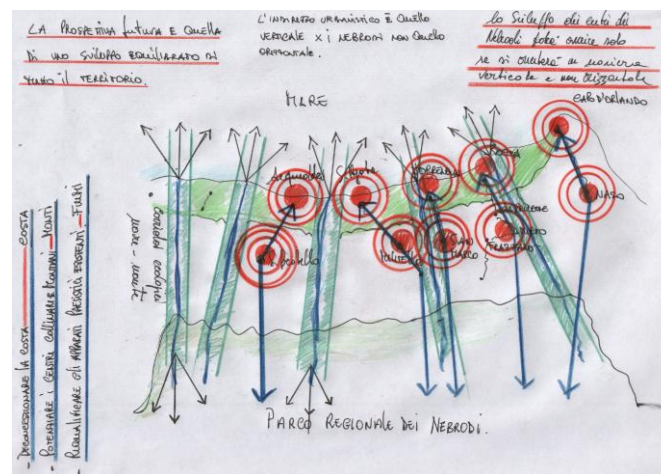 LA PROSPETTIVA futura E QUELLA
DI UNO SVILUPPO EQUILIBRATO DI
TUTTO IL TERRITORIO.
L'INDIRIZZO URBANISTICO È QUELLO
VERTICALE X i NEBRODI NON QUELLO
ORIZZONTALE.
lo Sviluppo dei centri dei
Nebrodi potrà
se si in maniera
verticale e non orizzontale
CAPO D'ORLANDO
MARE
Acquedolci
TORRENOVA
Rocca
NASO
CAPRILEONE
MIRTO
FRAZZANÒ
SAN
MARCO
corridoi ecologici
mare - monte
DECONGESTIONARE LA COSTA COSTA
POTENZIARE I CENTRI COLLINARI E MONTANI MONTI
RIQUALIFICARE GLI APPARATI PAESISTICI ESISTENTI FIUMI
PARCO REGIONALE DEI NEBRODI.